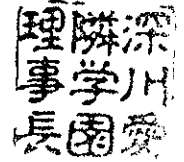 深川愛
隣学園
理事長